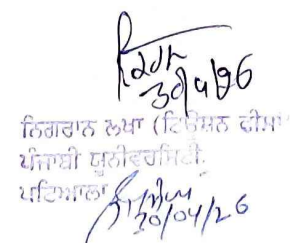 30/4/26
ਨਿਗਰਾਨ ਲੇਖਾ (ਟਿਊਸ਼ਨ ਫੀਸ)
ਪੰਜਾਬੀ ਯੂਨੀਵਰਸਿਟੀ,
ਪਟਿਆਲਾ
30/04/26